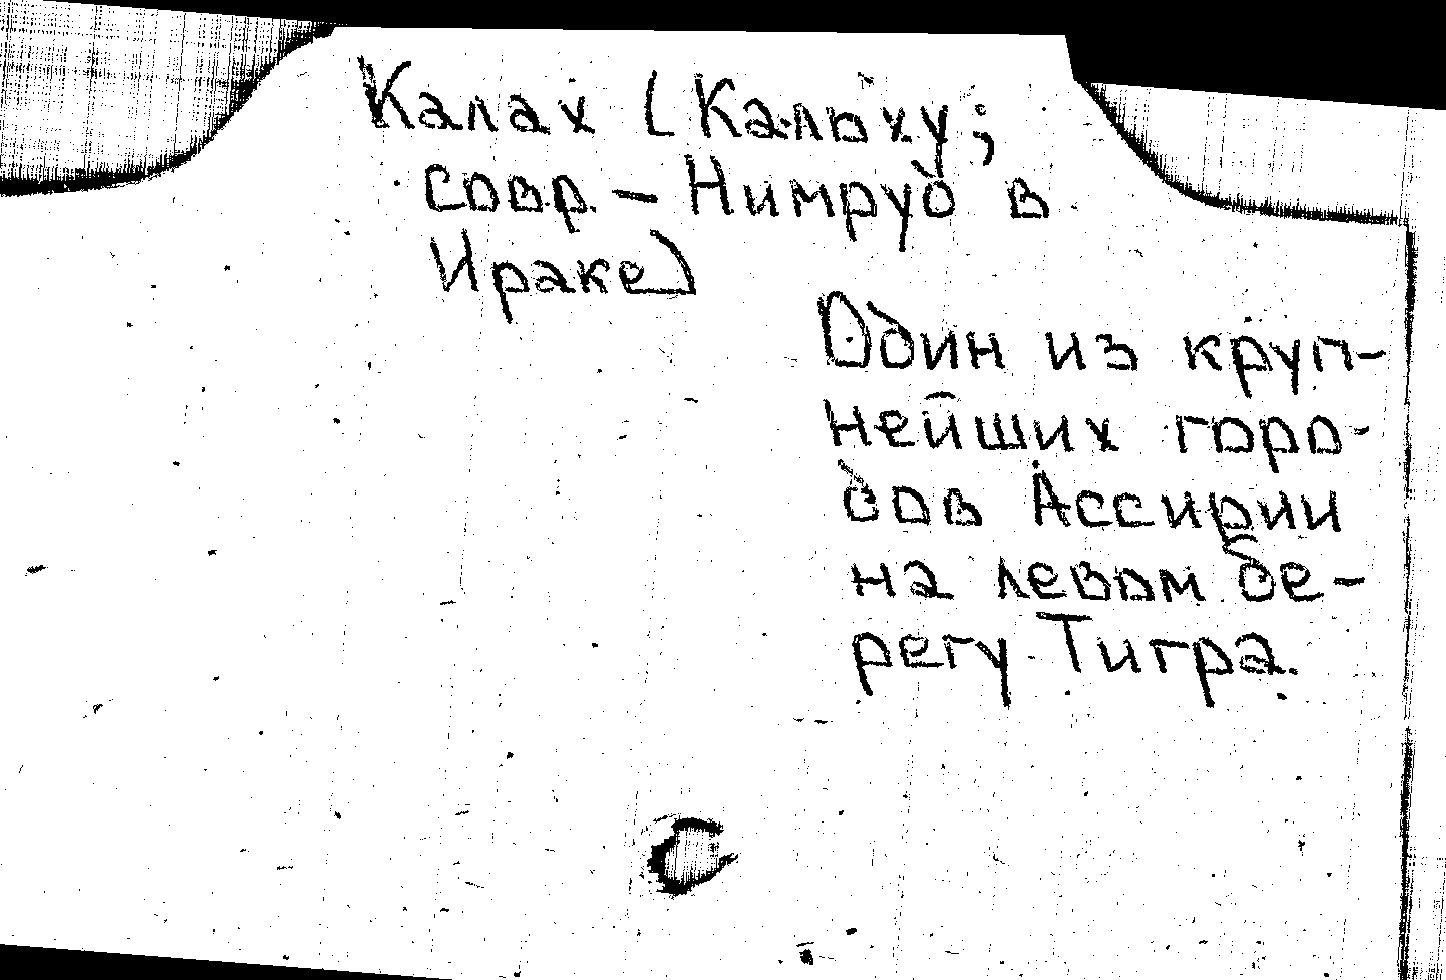 Калах (Кальху;
совр. – Нимруд в
Ираке)
Один из круп-
нейших горо-
дов Ассирии
на левом бе-
регу Тигра.